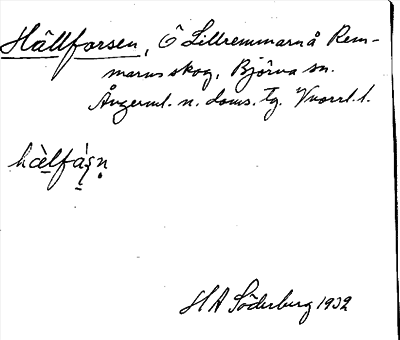 Hällforsen, Ö Lillremmarnå Rem-
marns skog, Björna sn.
Ångerml. n. doms. Tg. Vnorrl. l.
hàlfàşn̥
H A Söderberg 1932